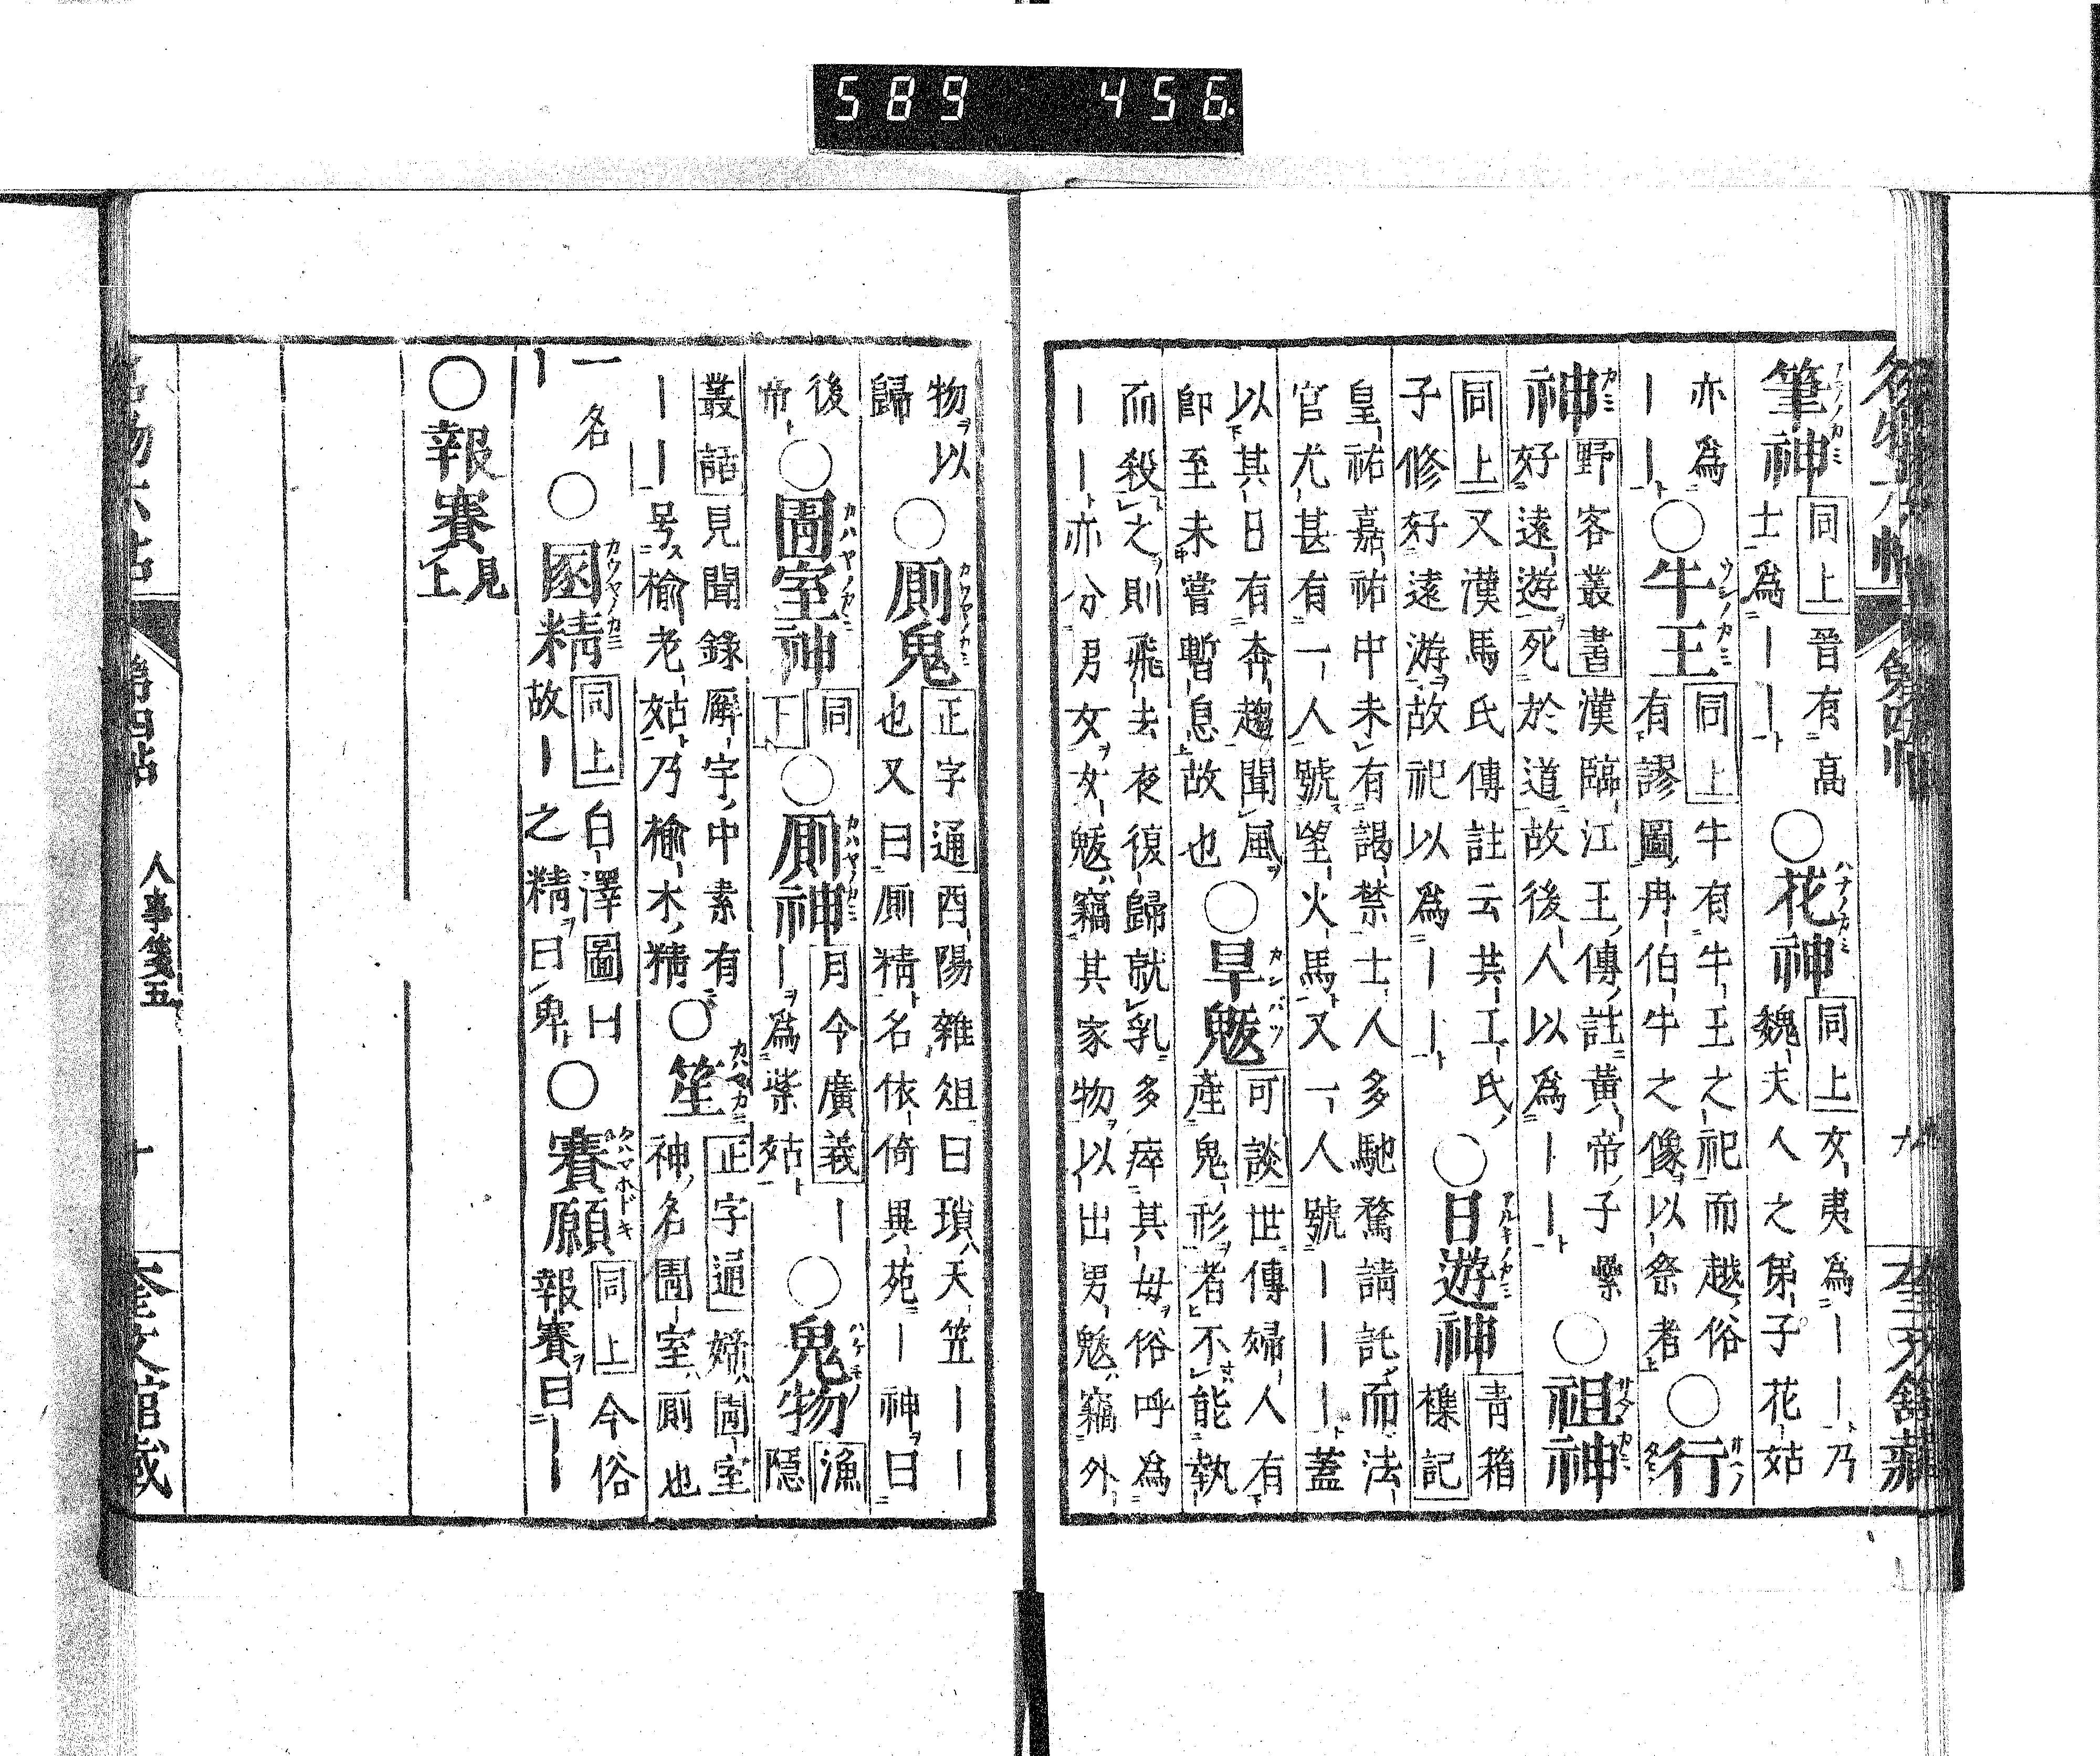 589 456
筆神 同上 晉有高士爲ーー 〇花神 同上 女夷爲ーー乃魏夫人之弟子花姑
亦爲ーー 〇牛王 同上 牛有牛王之祀而越俗有謬圖冉伯牛之像以祭者 〇行
神 野客叢書 漢臨江王傳註黃帝子纍好遠遊死於道故後人以爲ーー 〇祖神
同上 又漢馬氏傳註云共工氏子修好遠游故祀以爲ーー 〇日遊神 青箱樸記
皇祐嘉祐中未有謁禁士人多馳騖請託而法官尤甚有一人號望火馬又一人號ーーー蓋
以其日有奔趨聞風卽至未嘗暫息故也 〇旱魃 可談 世傳婦人有產鬼形者不能執
而殺之則飛去夜復歸就乳多瘁其母俗呼爲ーー亦分男女女魃竊其家物以出男魃竊外
物以歸 〇廁鬼 正字通 酉陽雜俎曰瑣天笠ーー也又曰廁精名依倚異苑ー神曰
後帝 〇圊室神 同下 〇廁神 月令廣義 ーー爲紫姑 〇鬼物 漁隱
叢話 見聞錄廨宇中素有ーー号榆老姑乃榆木精 〇㞗 正字通 㜑圊室神名圊室廁也
一名ー 〇圂精 同上 白澤圖曰故ー之精曰卑 〇賽願 同上 今俗報賽曰ーー
〇報賽 見上
名物六帖 第四帖 人事箋五 十 奎文館藏